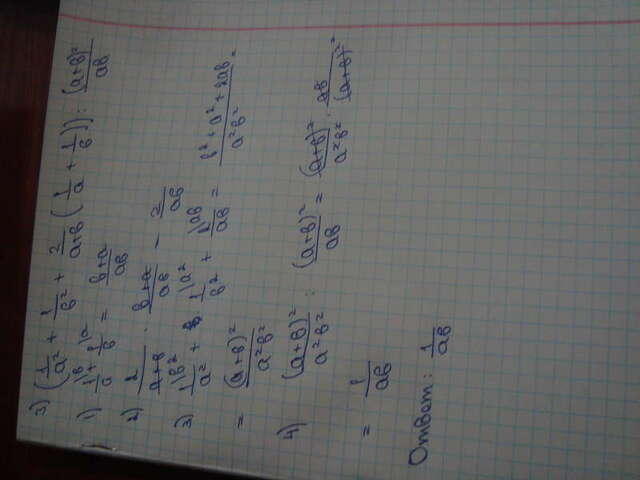 3) (1/a² + 1/b² + 2/(a+b) (1/a + 1/b)) : (a+b)²/ab
1) 1\b/a + 1\a/b = (b+a)/ab
2) 2/(a+b) · (b+a)/ab = 2/ab
3) 1\b²/a² + 1\a²/b² + 2\ab/ab = (b² + a² + 2ab)/a²b² =
= (a+b)²/a²b²
4) (a+b)²/a²b² : (a+b)²/ab = (a+b)²/a²b² · ab/(a+b)² =
= 1/ab
Ответ: 1/ab